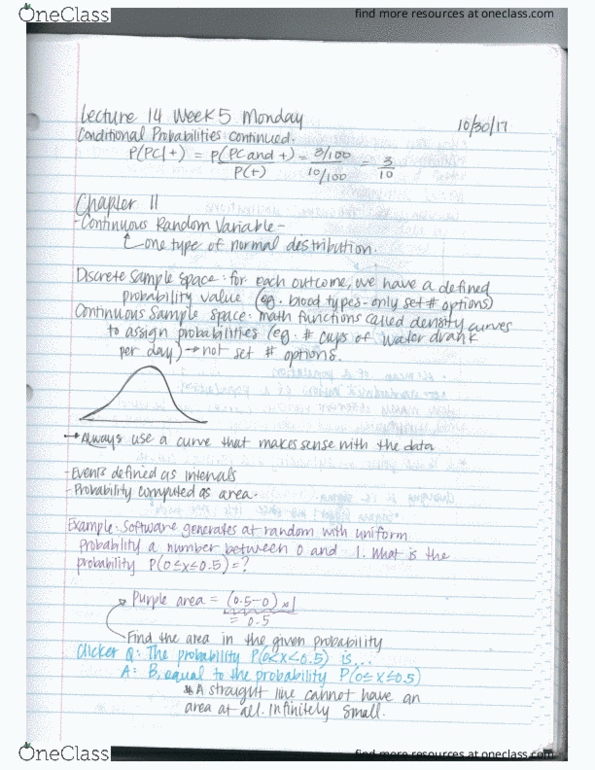 OneClass
find more resources at oneclass.com
Lecture 14 Week 5 Monday
10/30/17
Conditional Probabilities continued.
P(PC|+) = P(PC and +) = 3/100 = 3
P(+) 10/100 10
Chapter 11
-Continuous Random Variable-
one type of normal distribution.
Discrete Sample Space: for each outcome, we have a defined
probability value (eg. blood types-only set # options)
Continuous Sample Space: math functions called density curves
to assign probabilities (eg. # cups of water drank
per day) → not set # options.
→ Always use a curve that makes sense with the data
-Events defined as intervals
-Probability computed as area.
Example: Software generates at random with uniform
probability a number between 0 and 1. What is the
probability P(0≤x≤0.5)=?
Purple area = (0.5-0) x 1
= 0.5
Find the area in the given probability
Clicker Q: The probability P(0<x<0.5) is...
A: B. equal to the probability P(0≤x≤0.5)
*A straight line cannot have an
area at all. Infinitely small.
OneClass
find more resources at oneclass.com